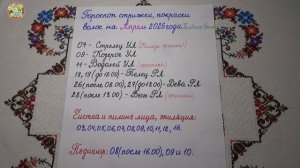 Гороскоп стрижки, покраски
волос на Апрель 2025 года
07 - Стрелец УЛ
09 - Козерог УЛ
11 - Водолей УЛ
12, 13 (до 18:00) - Телец РЛ
26 (после 08:00), 27 (до 18:00) - Дева РЛ
28 (после 18:00) - Весы РЛ
Чистка и пилинг лица, эпиляция:
03, 04, 05, 06, 07, 08, 09, 10, 11, 12, 16.
Педикюр: 08 (после 16:00), 09 и 10.